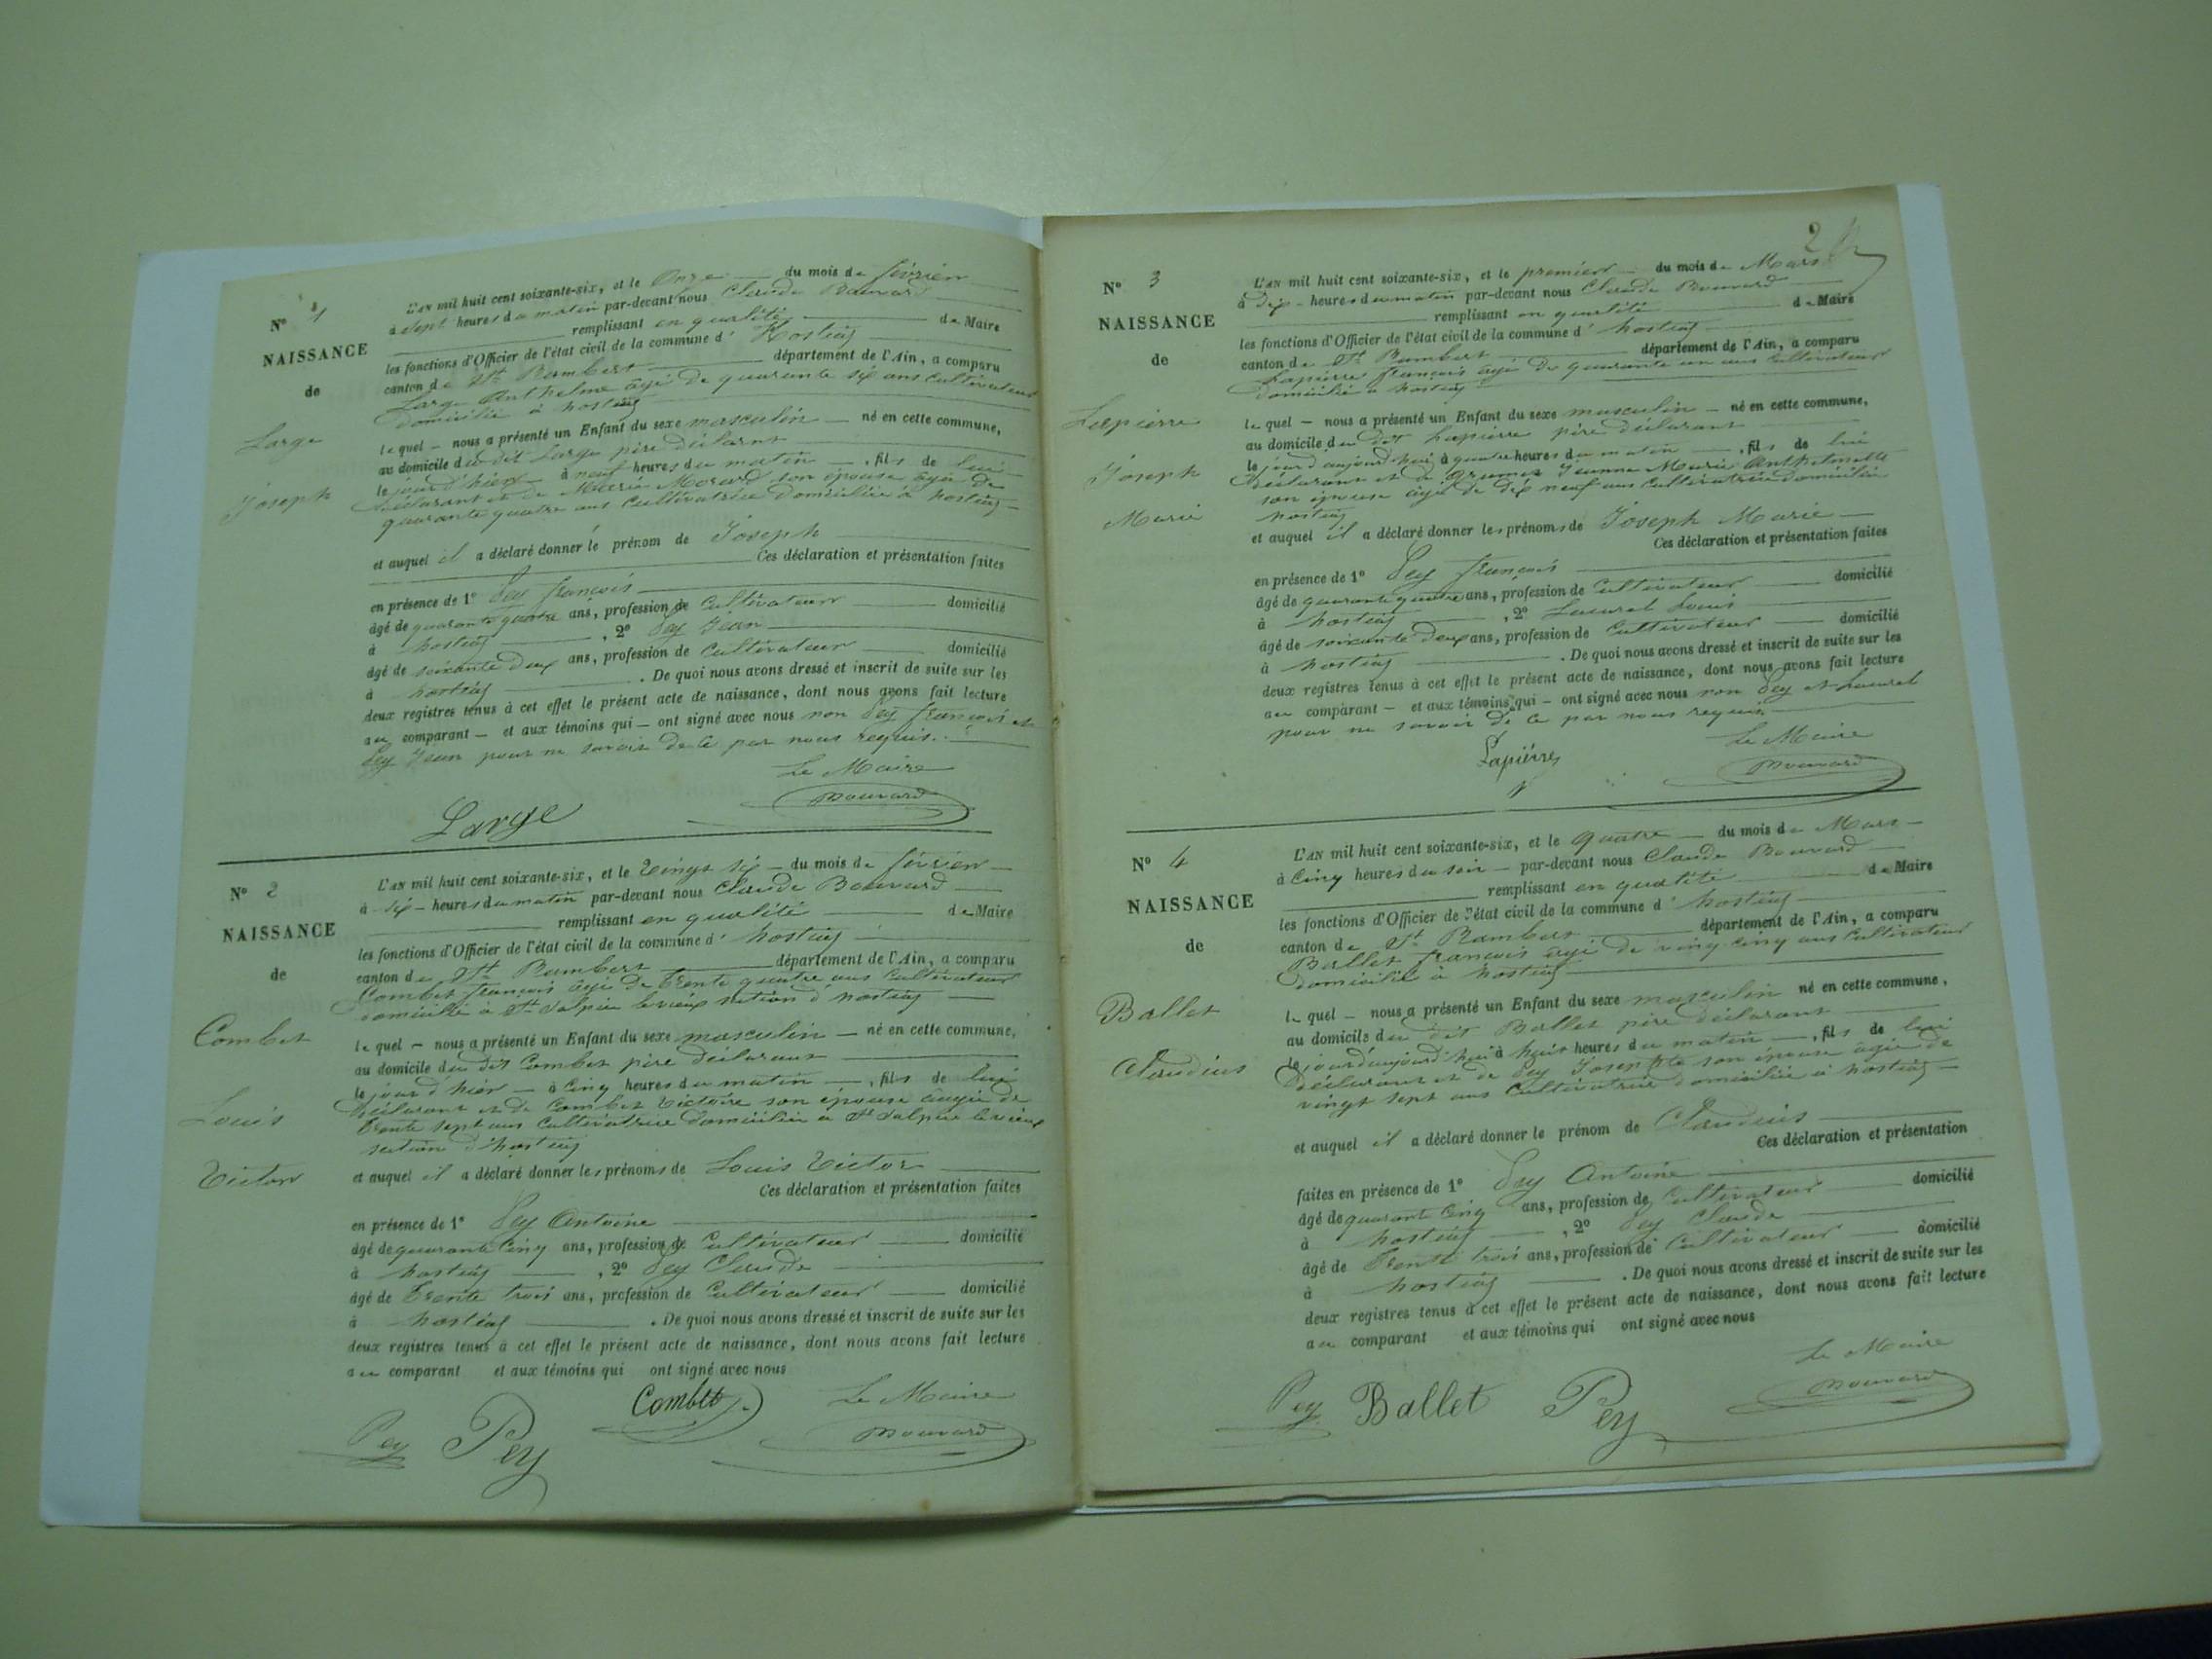 Nº 1
NAISSANCE
de
Large
Joseph
L'AN mil huit cent soixante-six, et le Onze du mois de février
à Sept heures du matin par-devant nous Claude Bouvard
remplissant en qualité de Maire
les fonctions d'Officier de l'état civil de la commune d' Hostiaz
canton de St Rambert département de l'Ain, a comparu
Large Anthelme âgé de quarante six ans cultivateur
domicilié à hostiaz
lequel – nous a présenté un Enfant du sexe masculin – né en cette commune,
au domicile du dit Large père déclarant
le jour d'hier à neuf heures du matin, fils de lui
déclarant et de Marie Morard son épouse âgée de
quarante quatre ans cultivatrice domiciliée à hostiaz
et auquel il a déclaré donner le prénom de Joseph
Ces déclaration et présentation faites
en présence de 1º Pey françois
âgé de quarante quatre ans, profession de Cultivateur domicilié
à hostiaz, 2º Pey Jean
âgé de soixante deux ans, profession de Cultivateur domicilié
à hostiaz. De quoi nous avons dressé et inscrit de suite sur les
deux registres tenus à cet effet le présent acte de naissance, dont nous avons fait lecture
au comparant – et aux témoins qui – ont signé avec nous non Pey françois et
Pey Jean pour ne savoir de ce par nous requis.
Le Maire
Large Bouvard
Nº 2
NAISSANCE
de
Combet
Louis
Victor
L'AN mil huit cent soixante-six, et le Vingt six du mois de février
à six heures du matin par-devant nous Claude Bouvard
remplissant en qualité de Maire
les fonctions d'Officier de l'état civil de la commune d' hostiaz
canton de St Rambert département de l'Ain, a comparu
Combet françois âgé de trente quatre ans Cultivateur
domicilié à St Sulpice le vieux section d'hostiaz
lequel – nous a présenté un Enfant du sexe masculin – né en cette commune,
au domicile du dit Combet père déclarant
le jour d'hier – à Cinq heures du matin –, fils de lui
déclarant et de Combet Victoire son épouse âgée de
trente sept ans Cultivatrice domiciliée à St Sulpice le vieux
section d'hostiaz
et auquel il a déclaré donner les prénoms de Louis Victor
Ces déclaration et présentation faites
en présence de 1º Pey Antoine
âgé de quarante Cinq ans, profession de Cultivateur domicilié
à hostiaz, 2º Pey Claude
âgé de Trente trois ans, profession de Cultivateur domicilié
à hostiaz. De quoi nous avons dressé et inscrit de suite sur les
deux registres tenus à cet effet le présent acte de naissance, dont nous avons fait lecture
au comparant et aux témoins qui ont signé avec nous
Combet Le Maire
Pey Pey Bouvard
2
Nº 3
NAISSANCE
de
Lapierre
Joseph
Marie
L'AN mil huit cent soixante-six, et le premier du mois de Mars
à dix heures du matin par-devant nous Claude Bouvard
remplissant en qualité de Maire
les fonctions d'Officier de l'état civil de la commune d' hostiaz
canton de St Rambert département de l'Ain, a comparu
Lapierre françois âgé de quarante un ans Cultivateur
domicilié à hostiaz
lequel – nous a présenté un Enfant du sexe masculin – né en cette commune,
au domicile du dit Lapierre père déclarant
le jour d'aujourd'hui à quatre heures du matin –, fils de lui
déclarant et de Jeanne Marie Anthelmette
son épouse âgée de dix neuf ans cultivatrice domiciliée
hostiaz
et auquel il a déclaré donner les prénoms de Joseph Marie
Ces déclaration et présentation faites
en présence de 1º Pey françois
âgé de quarante quatre ans, profession de Cultivateur domicilié
à hostiaz, 2º Laurat Louis
âgé de soixante deux ans, profession de Cultivateur domicilié
à hostiaz. De quoi nous avons dressé et inscrit de suite sur les
deux registres tenus à cet effet le présent acte de naissance, dont nous avons fait lecture
au comparant – et aux témoins qui – ont signé avec nous non Pey et
pour ne savoir de ce par nous requis
Le Maire
Lapierre Bouvard
Nº 4
NAISSANCE
de
Ballet
Claudius
L'AN mil huit cent soixante-six, et le quatre du mois de Mars
à Cinq heures du soir – par-devant nous Claude Bouvard
remplissant en qualité de Maire
les fonctions d'Officier de l'état civil de la commune d' hostiaz
canton de St Rambert département de l'Ain, a comparu
Ballet françois âgé de vingt cinq ans Cultivateur
domicilié à hostiaz
lequel – nous a présenté un Enfant du sexe masculin né en cette commune,
au domicile du dit Ballet père déclarant
le jour d'aujourd'hui à huit heures du matin –, fils de lui
déclarant et de Pey Josephte son épouse âgée de
vingt sept ans Cultivatrice domiciliée à hostiaz
et auquel il a déclaré donner le prénom de Claudius
Ces déclaration et présentation
faites en présence de 1º Pey Antoine
âgé de quarante Cinq ans, profession de Cultivateur domicilié
à hostiaz, 2º Pey Claude
âgé de Trente trois ans, profession de Cultivateur domicilié
à hostiaz. De quoi nous avons dressé et inscrit de suite sur les
deux registres tenus à cet effet le présent acte de naissance, dont nous avons fait lecture
au comparant et aux témoins qui ont signé avec nous
Le Maire
Pey Ballet Pey Bouvard